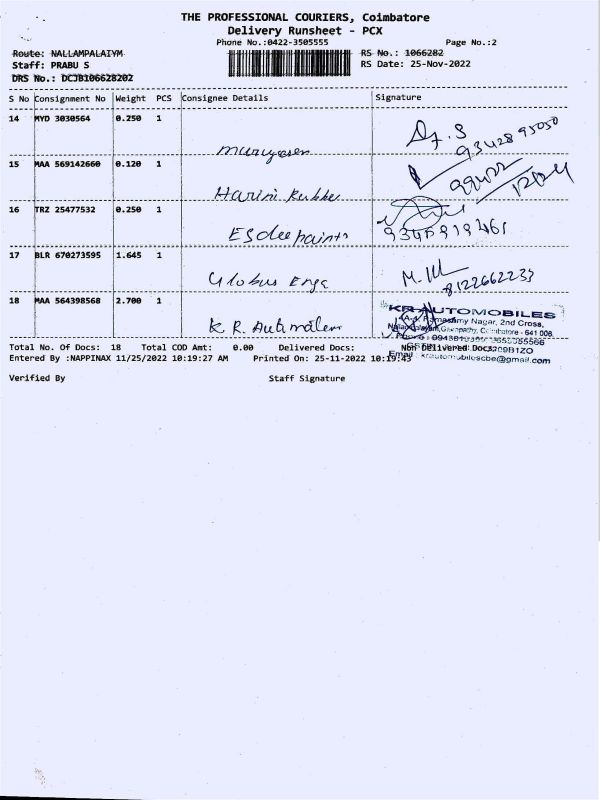 THE PROFESSIONAL COURIERS, Coimbatore
Delivery Runsheet - PCX
Phone No.:0422-3505555 Page No.:2
Route: NALLAMPALAIYM RS No.: 1066282
Staff: PRABU S RS Date: 25-Nov-2022
DRS No.: DCJB106628202
S No Consignment No Weight PCS Consignee Details Signature
14 MYD 3030564 0.250 1 murugesen
9342895050
15 MAA 569142660 0.120 1 Harini Rubber
99422
16 TRZ 25477532 0.250 1 Esdee paints
17 BLR 670273595 1.645 1 Globus Engg
8122662233
18 MAA 564398568 2.700 1 K R. Automalern
KR AUTOMOBILES
Ramasamy Nagar, 2nd Cross,
Ganapathy, Coimbatore - 641 006.
Email : krautomobilescbe@gmail.com
Total No. Of Docs: 18 Total COD Amt: 0.00 Delivered Docs: Non Delivered Docs:
Entered By :NAPPINAX 11/25/2022 10:19:27 AM Printed On: 25-11-2022 10:19:43
Verified By Staff Signature